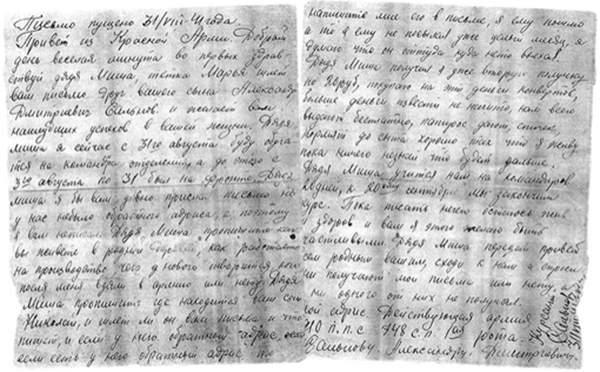 Письмо пущено 31/VIII-41 года.
Привет из Красной Армии. Добрый
день веселая минута во первых здрав-
ствуй дядя Миша, тетка Марья шлет
вам письмо друг вашего сына Александр
Дмитриевич Сальнов. и желает вам
наилучших успехов в вашей жизни. Дядя
Миша я сейчас с 31го августа буду обуча
тся на командира отделения, а до этого с
3го августа по 31 был на фронте. Дядя
Миша я бы вам давно прислал письмо но
у нас небыло обратного адреса, а поэтому
я вам написал. Дядя Миша пропишите как
вы живете в родной деревне, как работаете
на производстве чего у нового творится кого
после меня взяли в армию или нету. Дядя
Миша пропишите где находится ваш сын
Николай, и шлет ли он вам письма и что
пишет, и если у него обратный адрес, если
если есть у него обратный адрес то
напишите мне его в письме, я ему пошлю
а то я ему не посылал уже целый месяц, я
думаю что он оттуда куда нето выехал.
Дядя Миша получил я уже вторую получку
по руб, покупаю на эти деньги конвертов,
больше деньги извести не начто, нам всего
выдают бесплатно, папирос дают, спичек,
кормят до сыта хорошо так что я живу
пока ничего незнай что будет дальше.
Дядя Миша учится нам на командиров
20 дней, к 20му сентябрю мы закончим
курс. Пока писать нечего остаюсь жив
здоров и вам я этого желаю быть
счастливыми. Дядя Миша передай привет
всем родным вашим, сходи к нам и спроси
они получают мои письма или нету.
ни одного от них не получал.
мой адрес. Действующая армия
п.п.с 748 с.п. 1ая рота.
Сальнову Александру Дмитриевичу.
К сему
Сальнов